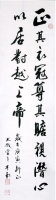 正其衣冠尊其瞻視潛心
以居對越上帝